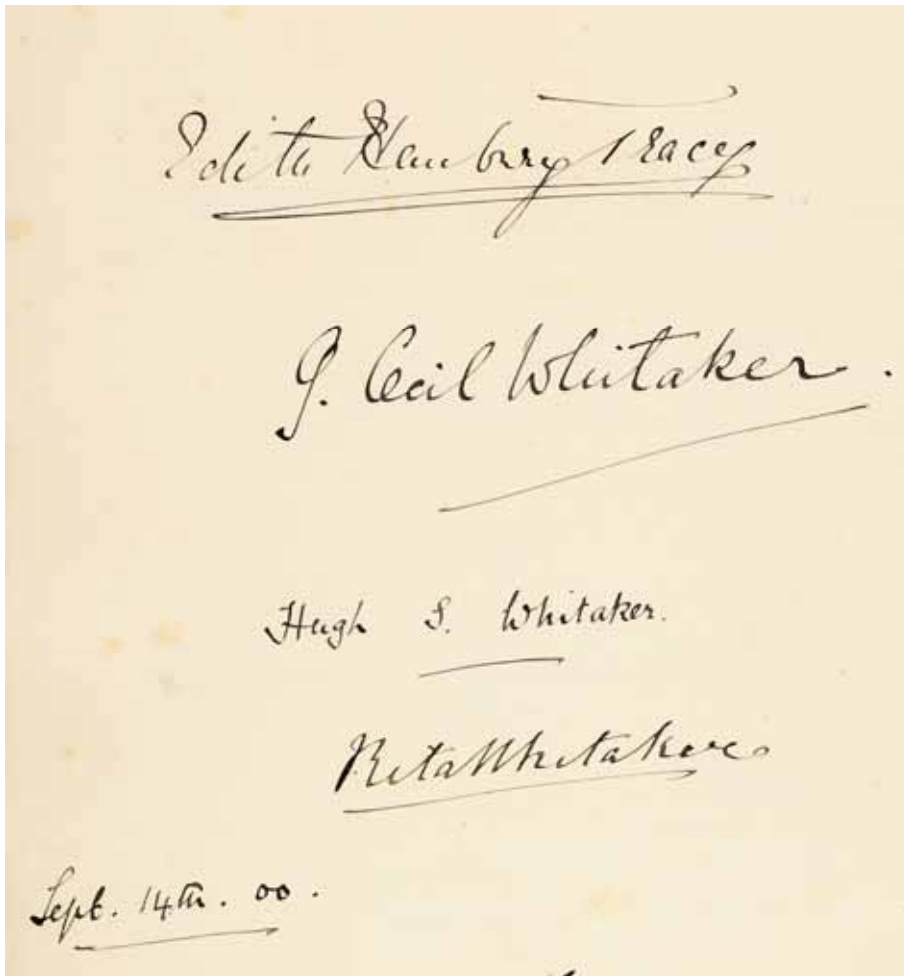 Edith Hanbury Tracy
G. Cecil Whitaker.
Hugh S. Whitaker.
Rita Whitaker
Sept. 14th. 00.